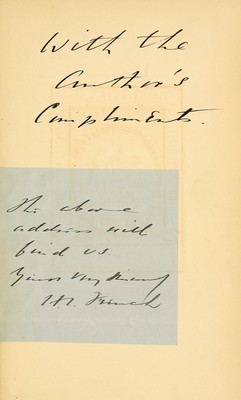 With the
Author's
Compliments.
The above
address will
find us.
Yours very
French